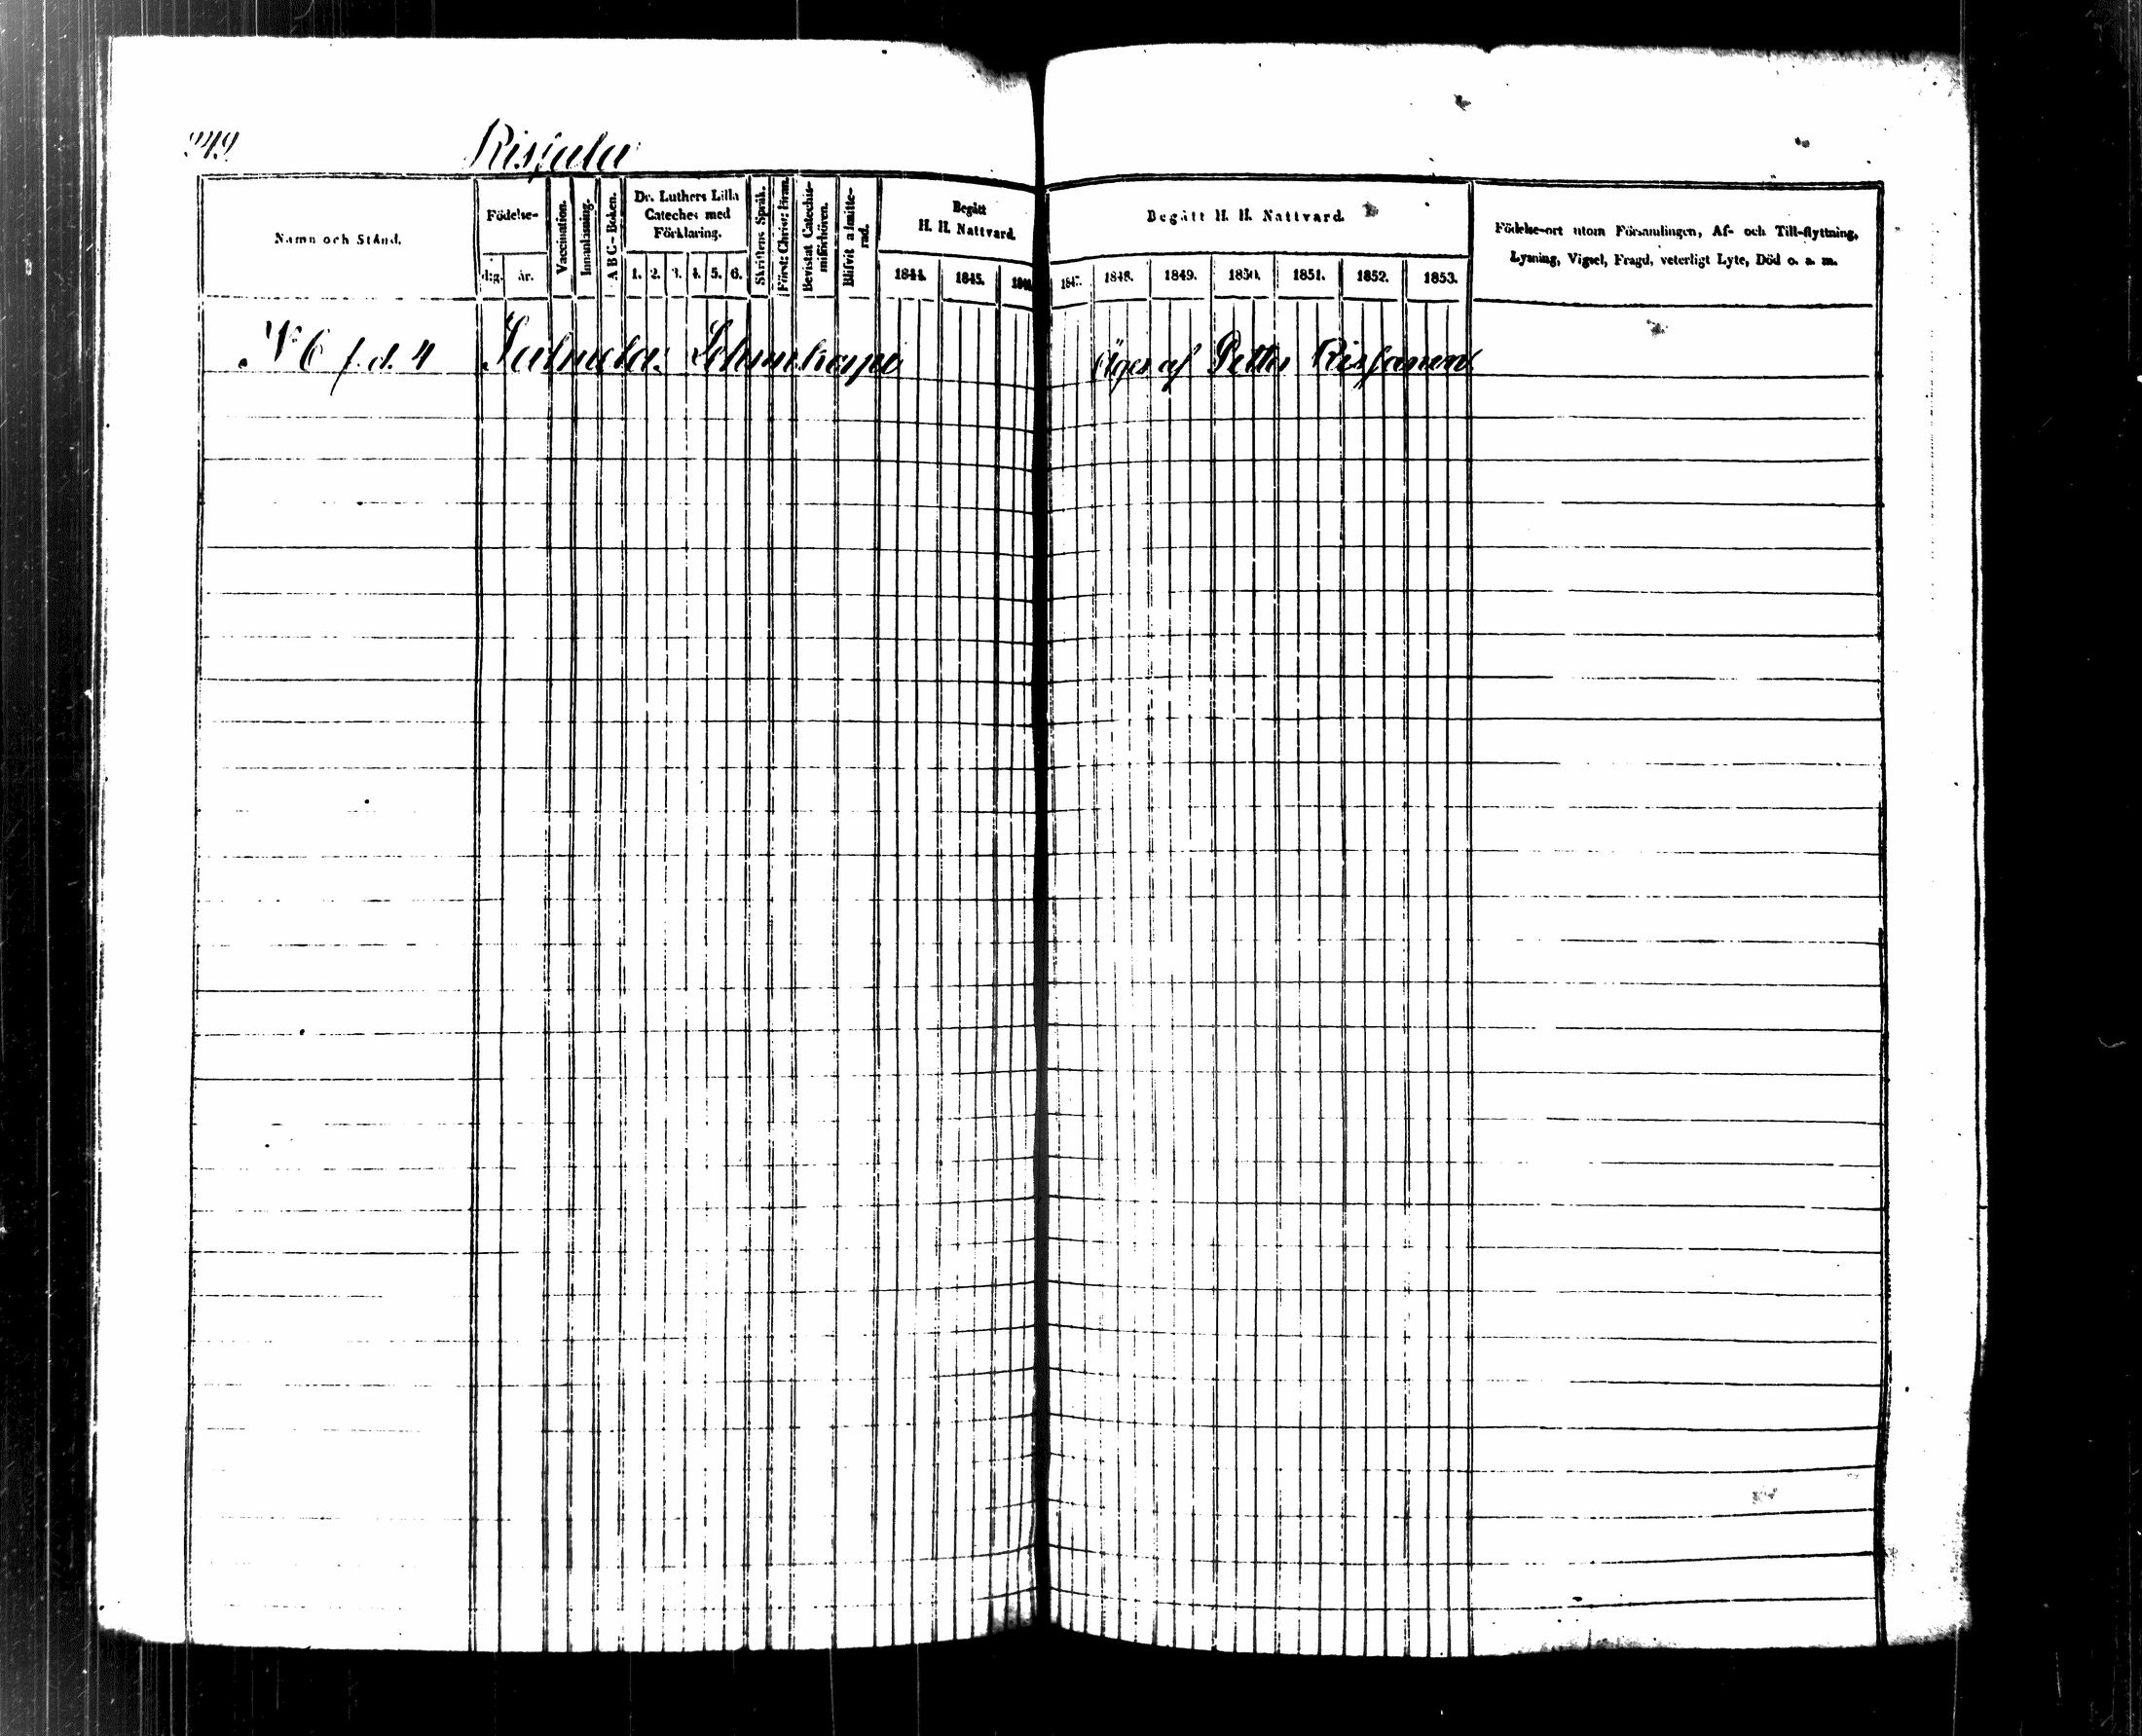 249
Risjala
Namn och Stånd.
Födelse-
dag.
år.
Vaccination.
Innanläsning.
A B C-Boken.
Dr. Luthers Lilla
Cateches med
Förklaring.
1. 2. 3. 4. 5. 6.
Skriftens Språk.
Först: Christ:
Bevistat Catechis-
miförhören.
Blifvit admitte-
rad.
Begått
H. H. Nattvard.
1844. 1845. 1846.
Begått H. H. Nattvard.
1847. 1848. 1849. 1850. 1851. 1852. 1853.
Födelse-ort utom Församlingen, Af- och Till-flyttning,
Lysning, Vigsel, Fragd, veterligt Lyte, Död o. s. m.
N:o 6 f. d. 4 Äges af Petter Risjanen